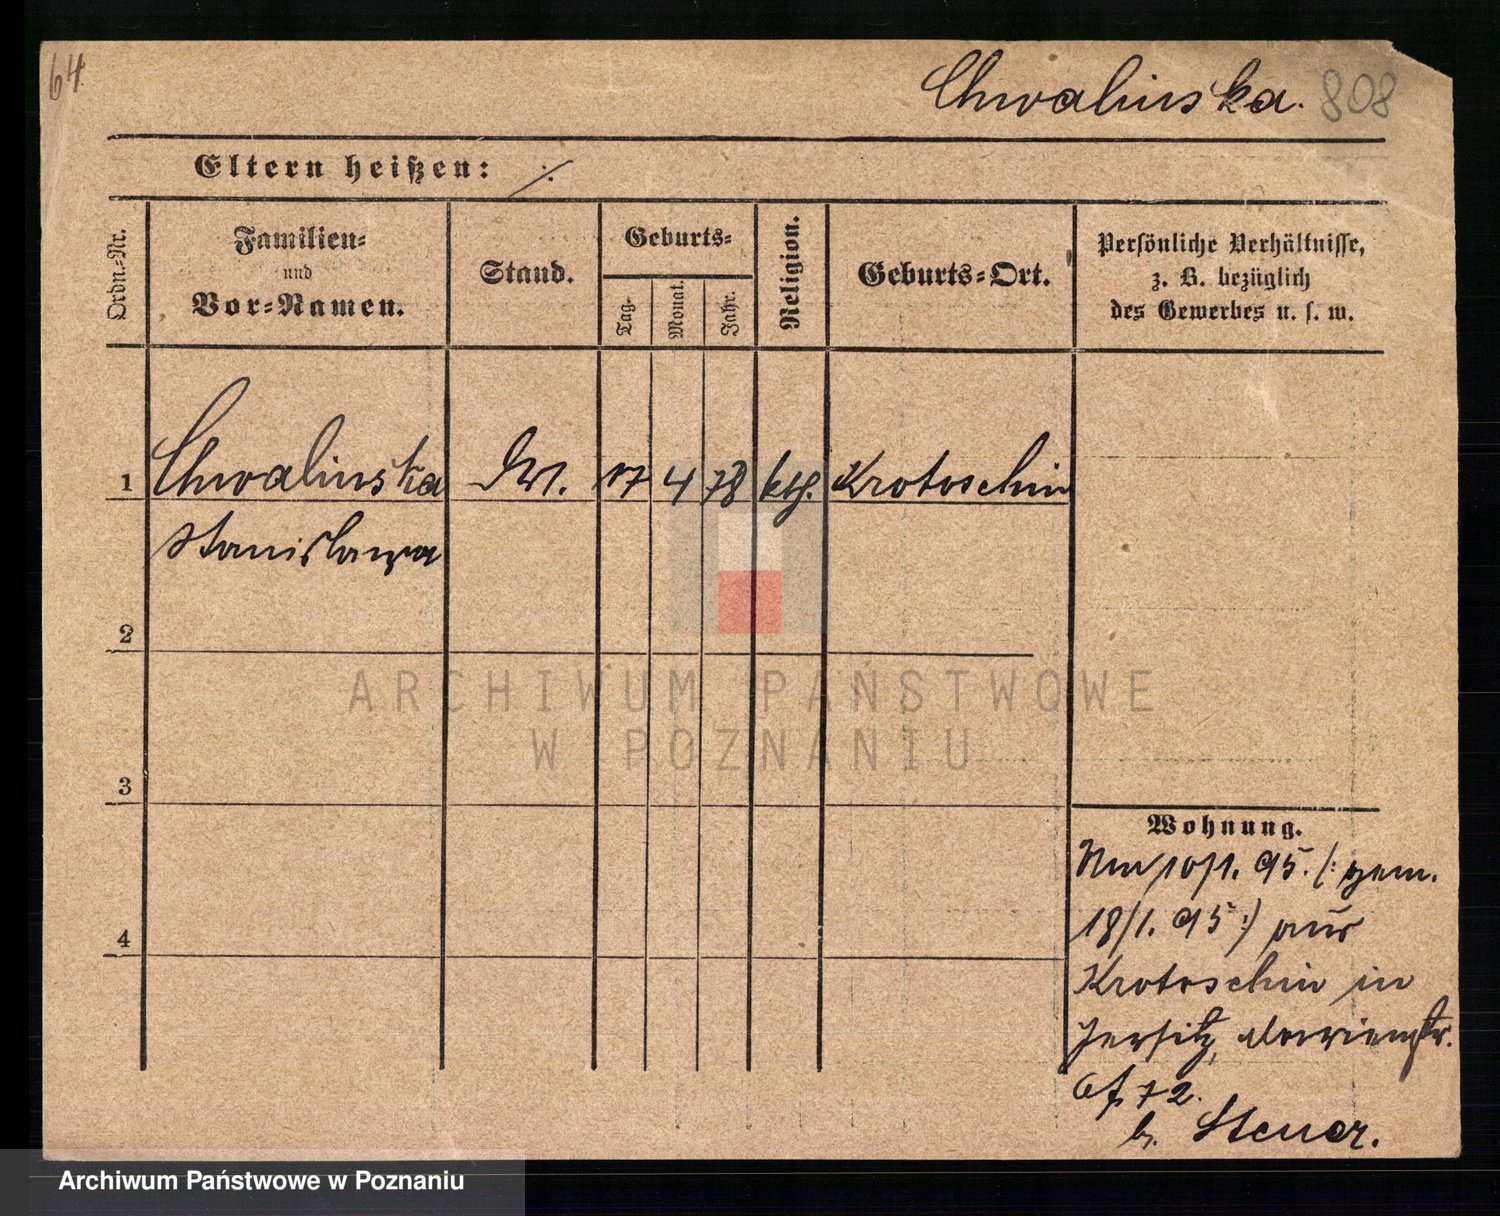 64
Chwalinska. 808
Eltern heißen: ./.
Ordn.=Nr.
Familien=
und
Vor=Namen.
Stand.
Geburts=
Tag.
Monat.
Jahr.
Religion.
Geburts=Ort.
Persönliche Verhältnisse,
z. B. bezüglich
des Gewerbes u. s. w.
1 Chwalinska 17 4 78 kth. Krotoschin
Stanislawa
2
3
4
Wohnung.
10/1. 95. /: gem.
18/1. 95 :/ aus
Krotoschin in
Jersitz,
72.
b. Steuer.
ARCHIWUM PAŃSTWOWE
W POZNANIU
Archiwum Państwowe w Poznaniu